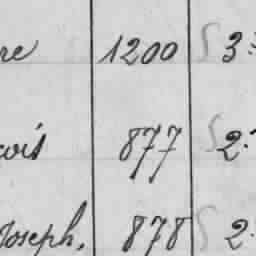 re 1200 3
çois 877 2.
Joseph, 878 2.